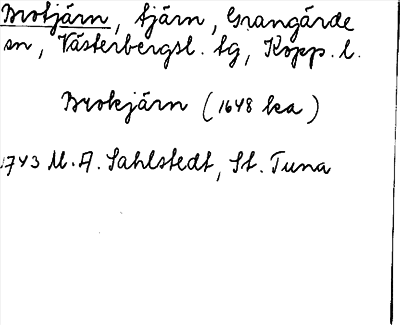 Brotjärn, tjärn, Grangärde
sn, Västerbergsl. tg, Kopp. l.
Brokjärn (1648 ka)
1743 M. A. Sahlstedt, St. Tuna